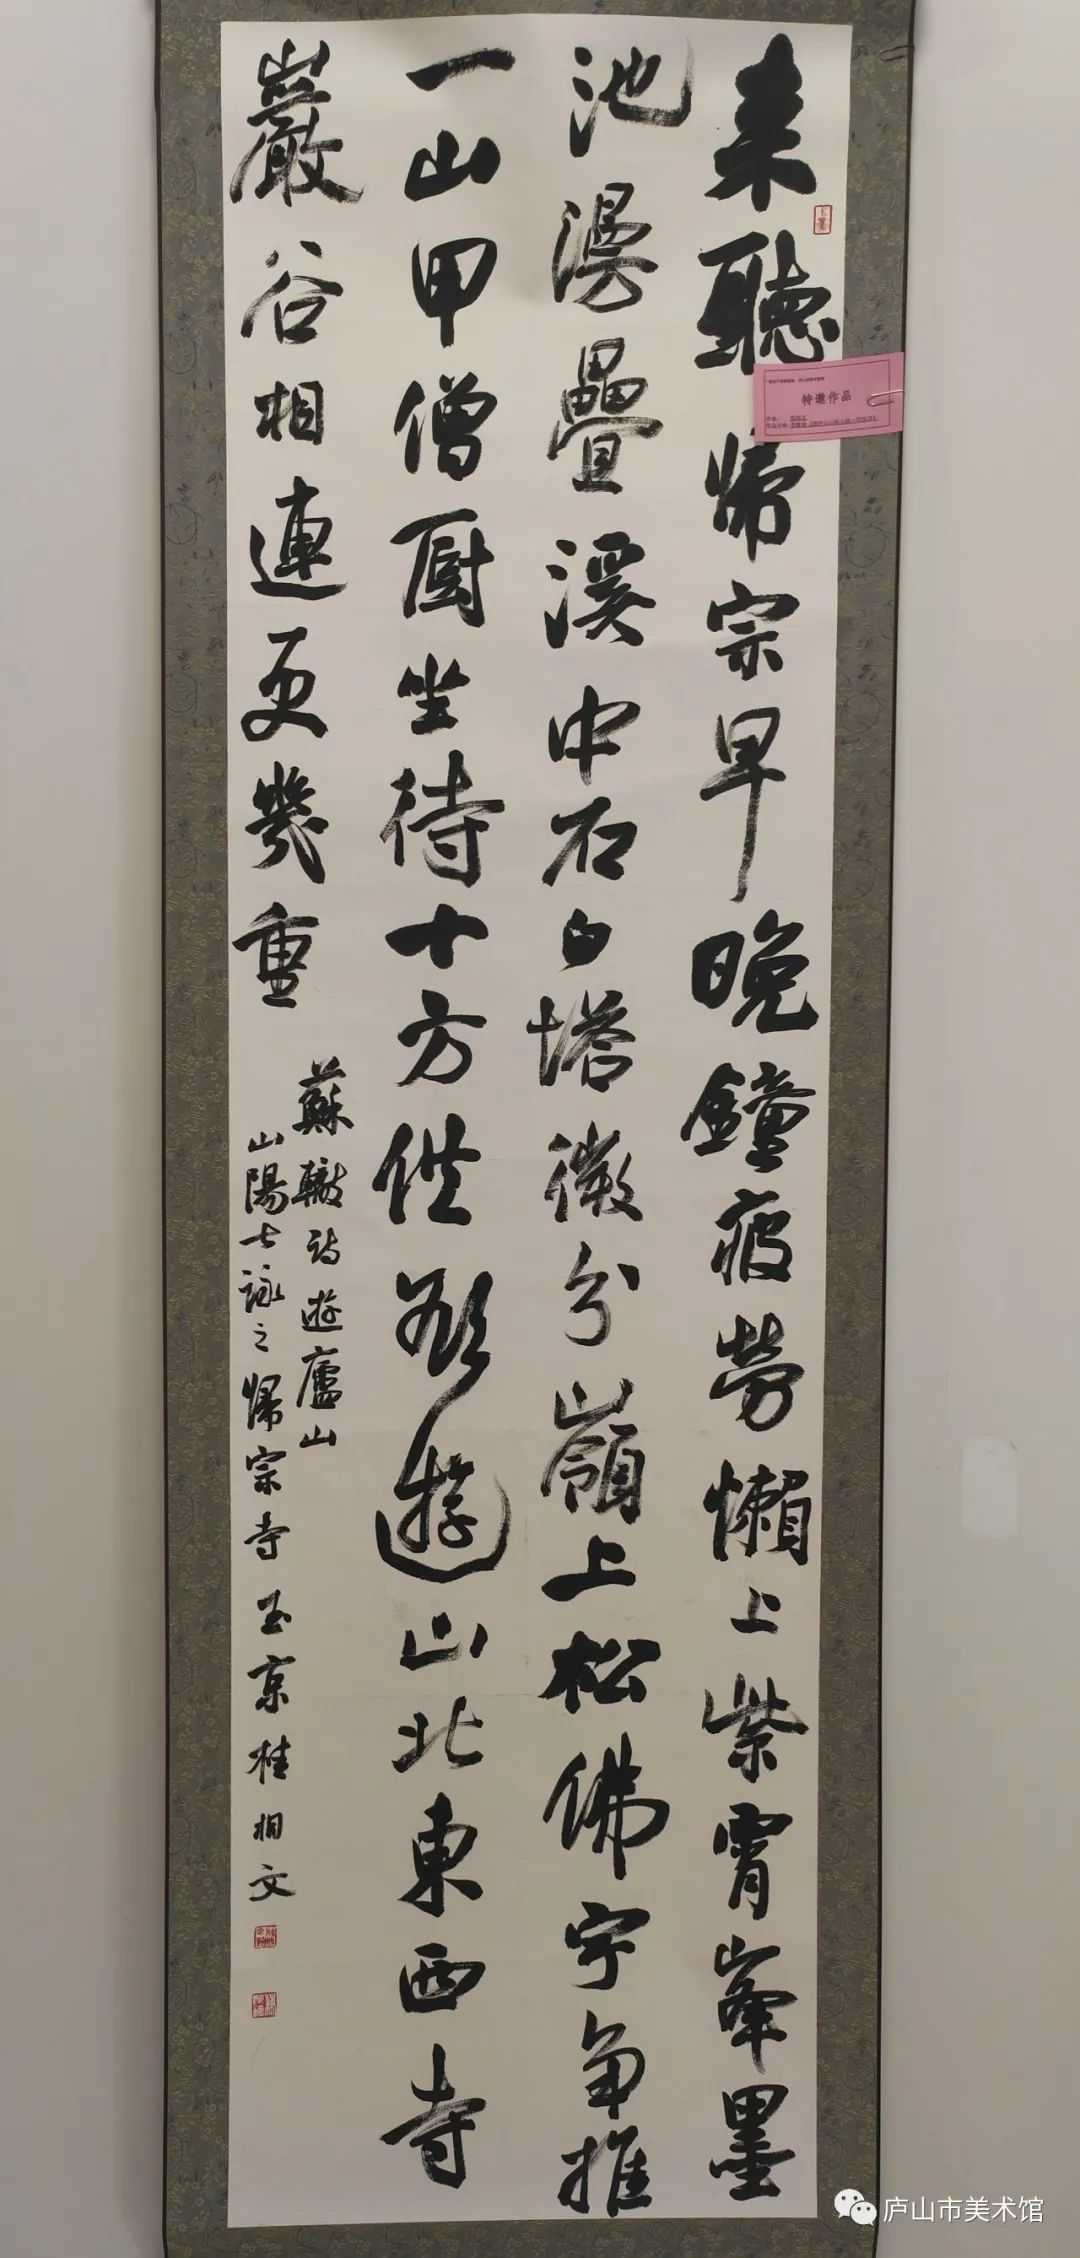 来聽帰宗早晚鐘疲勞懶上紫霄峯墨
池漫疊溪中石白塔微分嶺上松佛宇争推
一山甲僧厨坐待十方供欲遊山北東西寺
巖谷相連更幾重
蘇轍詩遊廬山
山陽七詠之帰宗寺 玉京桂相文
特邀作品
庐山市美术馆